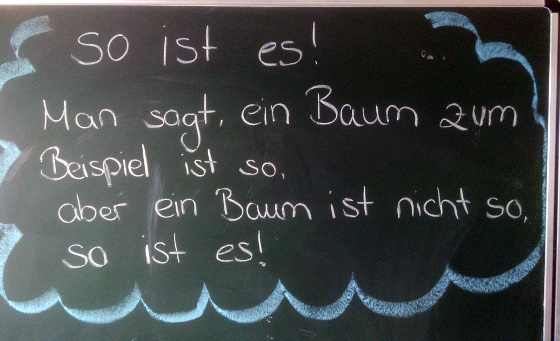 so ist es!
Man sagt, ein Baum zum
Beispiel ist so,
aber ein Baum ist nicht so,
so ist es!